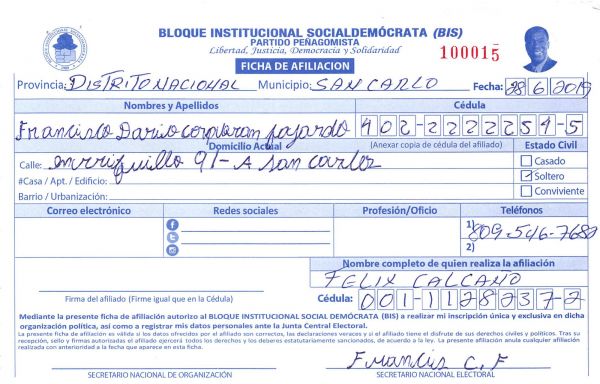 BLOQUE INSTITUCIONAL SOCIALDEMÓCRATA (BIS)
PARTIDO PEÑAGOMISTA
Libertad, Justicia, Democracia y Solidaridad
100015
FICHA DE AFILIACION
Provincia: DISTRITO NACIONAL Municipio: SAN CARLO Fecha: 28 6 2019
Nombres y Apellidos Cédula
Francisco Dario corporan fajardo 402-2222254-5
Domicilio Actual (Anexar copia de cédula del afiliado) Estado Civil
Calle: enrriquillo 91-A San carlos Casado
#Casa / Apt. / Edificio: Soltero
Barrio / Urbanización: Conviviente
Correo electrónico Redes sociales Profesión/Oficio Teléfonos
1) 809-546-7680
2)
Nombre completo de quien realiza la afiliación
FELIX CALCAÑO
Firma del afiliado (Firme igual que en la Cédula) Cédula: 001-1128237-2
Mediante la presente ficha de afiliación autorizo al BLOQUE INSTITUCIONAL SOCIAL DEMÓCRATA (BIS) a realizar mi inscripción única y exclusiva en dicha
organización política, así como a registrar mis datos personales ante la Junta Central Electoral.
La presente ficha de afiliación es válida si los datos ofrecidos por el afiliado son correctos, las declaraciones veraces y si el afiliado tiene el disfrute de sus derechos civiles y políticos. Tras su
recepción, sello y firmas autorizadas el afiliado ejercerá todos los derechos y los deberes estatutariamente sancionados, de acuerdo a la ley. La presente afiliación anula cualquier afiliación
realizada con anterioridad a la fecha que aparece en esta ficha.
Francis C. F
SECRETARIO NACIONAL DE ORGANIZACIÓN SECRETARIO NACIONAL ELECTORAL